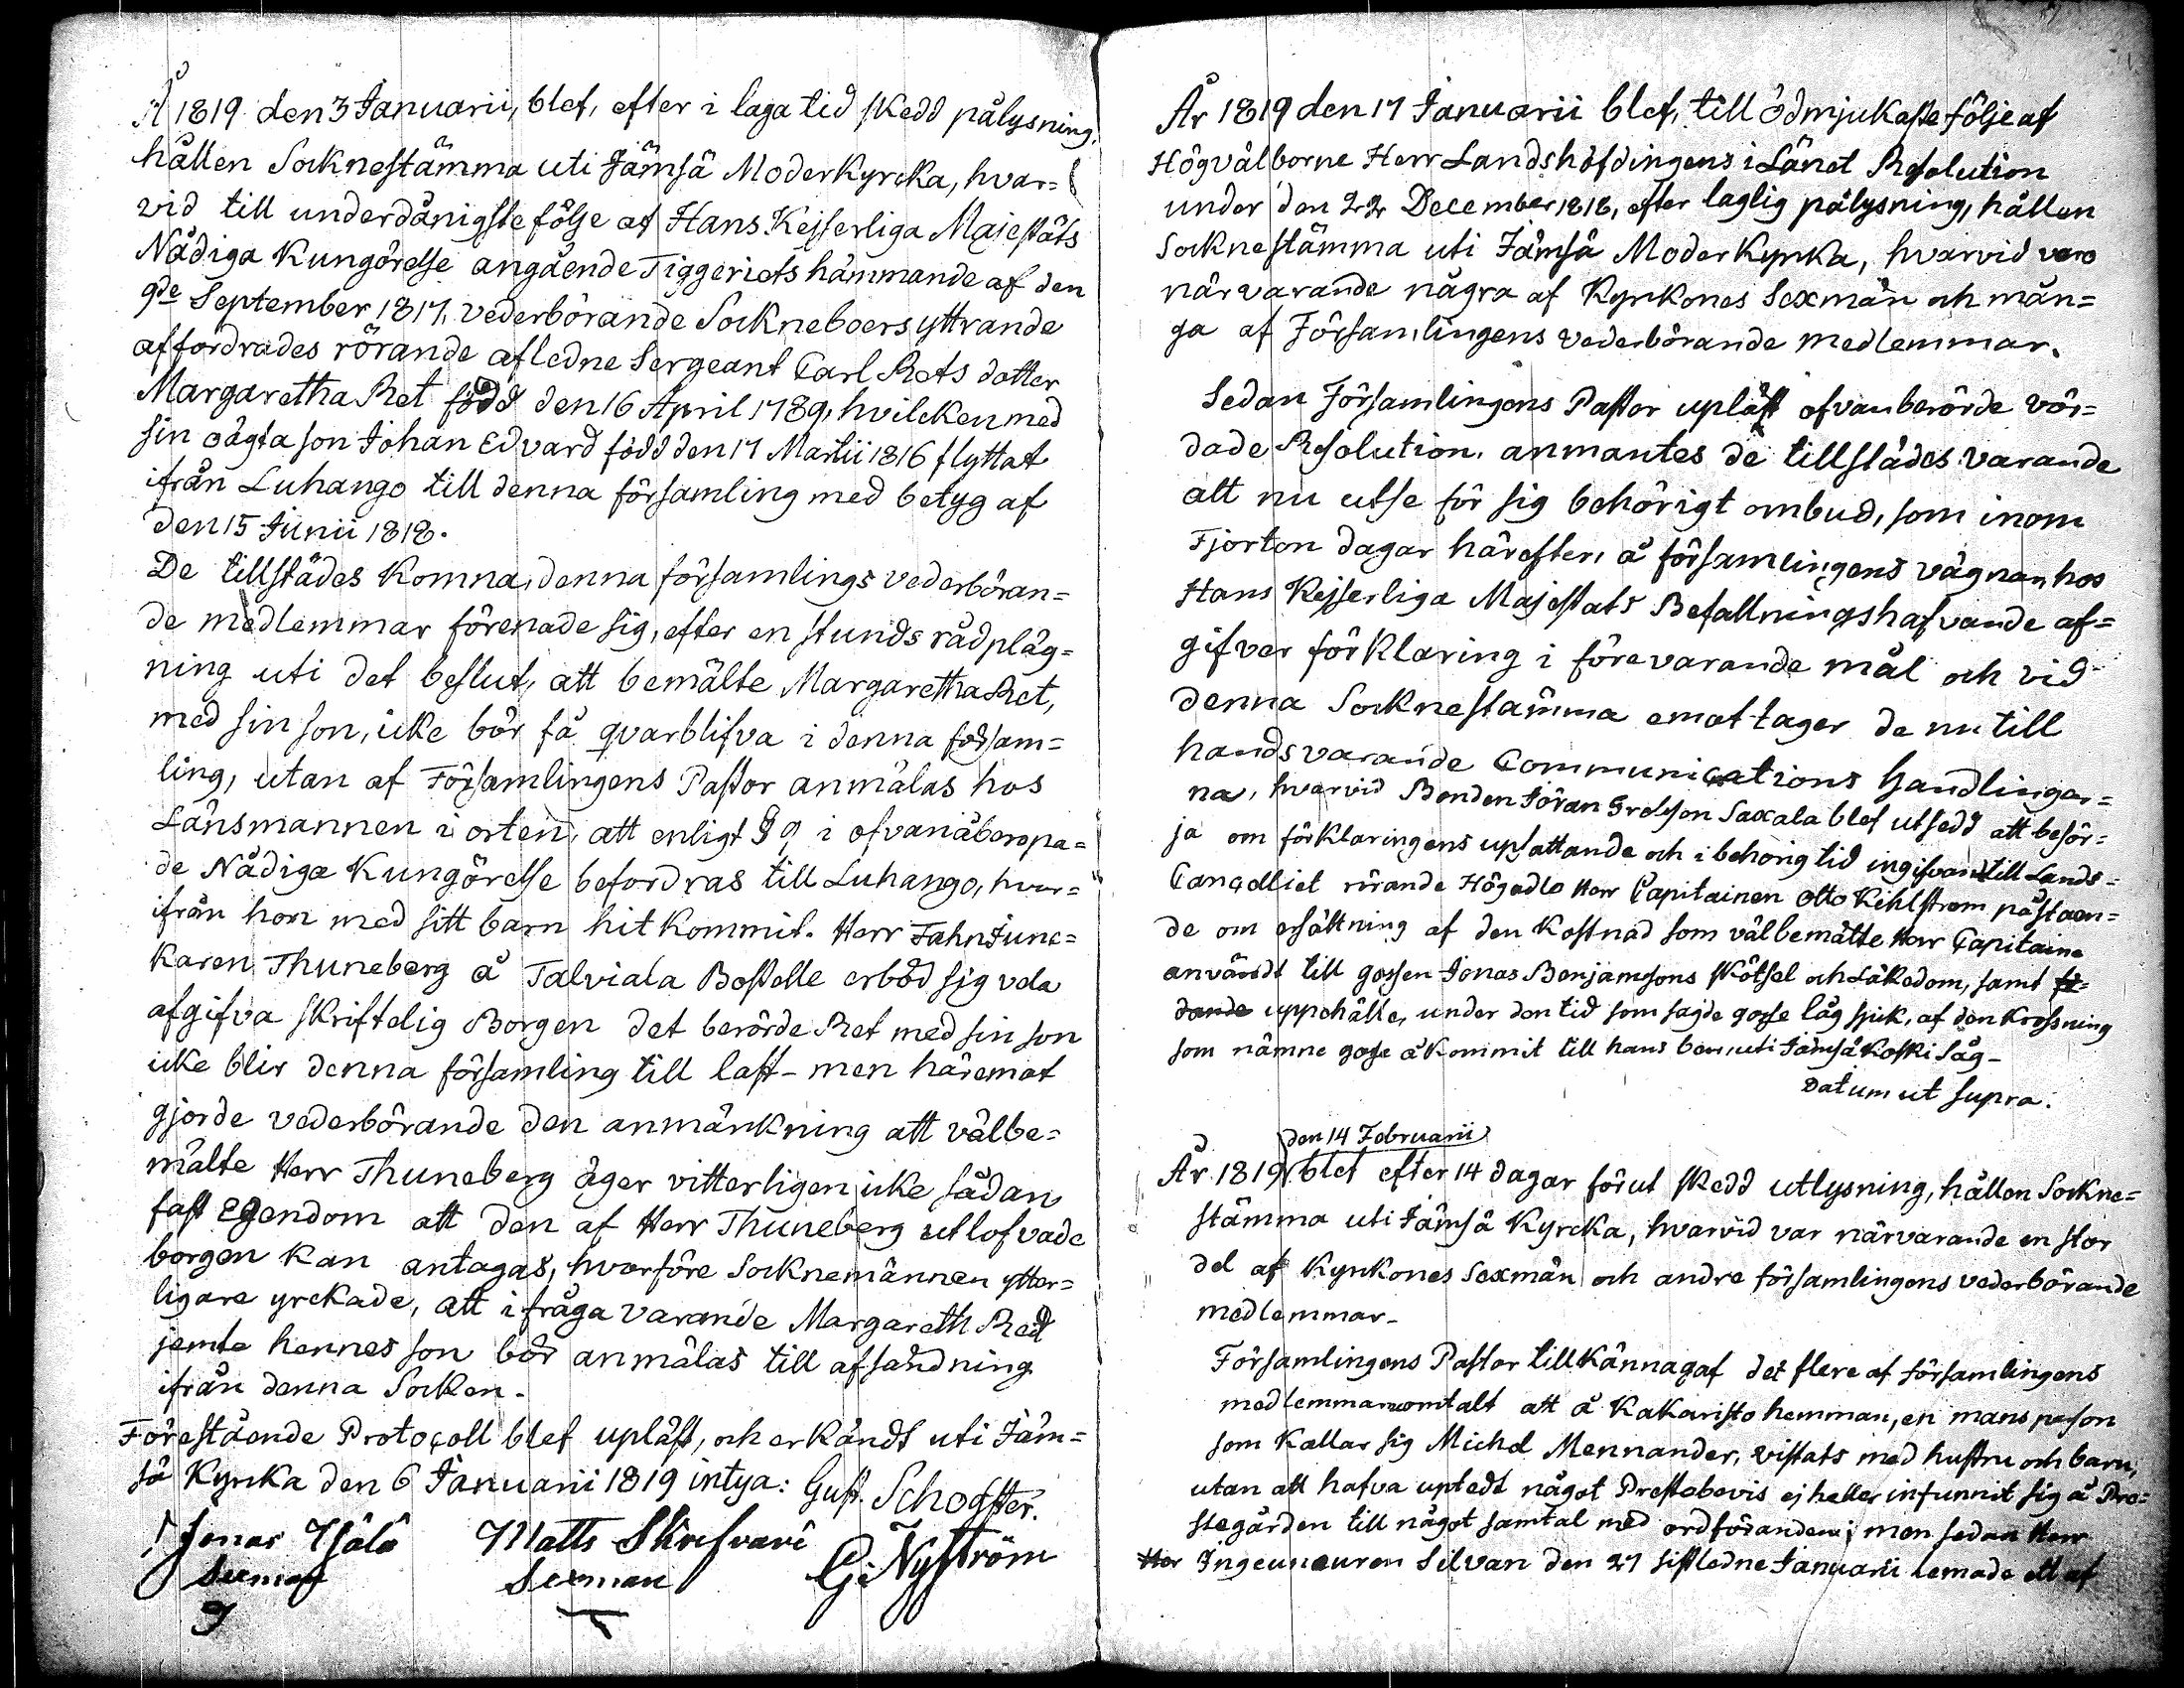 År 1819 den 3 Januarii, blef, efter i laga tid skedd pålysning,
hållen Socknestämma uti Jämsä Moderkyrcka, hvar=
vid till underdånigste följe af Hans Kejserliga Majestäts
Nådiga Kungörelse angående Tiggeriets hämmande af den
9de September 1817, vederbörande Sockneboers yttrande
affordrades rörande afledne Sergeant Carl Rets dotter
Margaretha Ret född den 16 April 1789, hvilcken med
sin oägta son Johan Edvard född den 17 Martii 1816 flyttat
ifrån Luhango till denna församling med betyg af
den 15 Junii 1818.
De tillstädes komna, denna församlings vederböran=
de medlemmar förenade sig, efter en stunds rådpläg=
ning uti det beslut, att bemälte Margaretha Ret,
med sin son, icke bör få qvarblifva i denna försam=
ling, utan af Församlingens Pastor anmälas hos
Länsmannen i orten, att enligt § 9 i ofvanåberopa=
de Nådiga Kungörelse befordras till Luhango, hvar=
ifrån hon med sitt barn hit kommit. Herr Fahnjunc=
karen Thuneberg å Talviala Boställe erböd sig vela
afgifva skriftelig Borgen det berörde Ret med sin son
icke blir denna församling till last - men häremot
gjorde vederbörande den anmärkning att välbe=
mälte Herr Thuneberg äger vitterligen icke sådan
fast Egendom att den af Herr Thuneberg utlofvade
borgen kan antagas, hvarföre Socknemännen ytter=
ligare yrckade, att i fråga varande Margareth Ret
jemte hennes son bör anmälas till afsändning
ifrån denna Socken.
Förestående Protocoll blef upläst, och erkändt uti Jäm=
sä Kyrka den 6 Januarii 1819 intyga: Gust. Schogster.
Jonas Matts G. Nyström
Sexman Sexman
År 1819 den 17 Januarii blef, till ödmjukaste följe af
Högvälborne Herr Landshöfdingens i Länet Resolution
under den 22 December 1818, efter laglig pålysning, hållen
Socknestämma uti Jämsä Moderkyrka, hvarvid voro
närvarande några af Kyrkones Sexmän och mån=
ga af Församlingens vederbörande medlemmar.
Sedan Församlingens Pastor upläst ofvanberörde vör=
dade Resolution, anmantes de tillstädes varande
att nu utse för sig behörigt ombud, som inom
Fjorton dagar härefter, å församlingens vägnar, hos
Hans Kejserliga Majestäts Befallningshafvande af=
gifver förklaring i förevarande mål och vid
denna Socknestämma emottager de nu till
hands varande Communications handlingar=
na, hvarvid Bonden Jöran Grelsson Saxala blef utsedd att besör=
ja om förklaringens upsattande och i behörig tid ingifvande till Lands=
Cancelliet rörande Högädle Herr Capitainen Otto Kihlstrem påståen=
de om ersättning af den Kostnad som välbemälte Herr Capitaine
användt till gossen Jonas Benjamssons skötsel och Läkedom, samt
dande uppehälle, under den tid som sagde gosse låg sjuk, af den krossning
som nämne gosse åkommit till hans ben, uti Jämsäkoski Såg -
Datum ut supra.
den 14 Februarii
År 1819 blef efter 14 dagar förut skedd utlysning, hållen Sockne=
stämma uti Jämsä Kyrcka, hvarvid var närvarande en stor
del af Kyrkones Sexmän och andre församlingens vederbörande
medlemmar -
Församlingens Pastor tillkännagaf det flere af församlingens
medlemmar omtalt att å Kakaristo hemman, en mansperson
som kallar sig Michel Mennander, vistats med hustru och barn,
utan att hafva uptedt något Prestabevis ej heller infunnit sig å Pre=
stegården till något samtal med ordföranden; men sedan Herr
Her Ingeuneuren Silvan den 27 sistledne Januarii lemade ett af